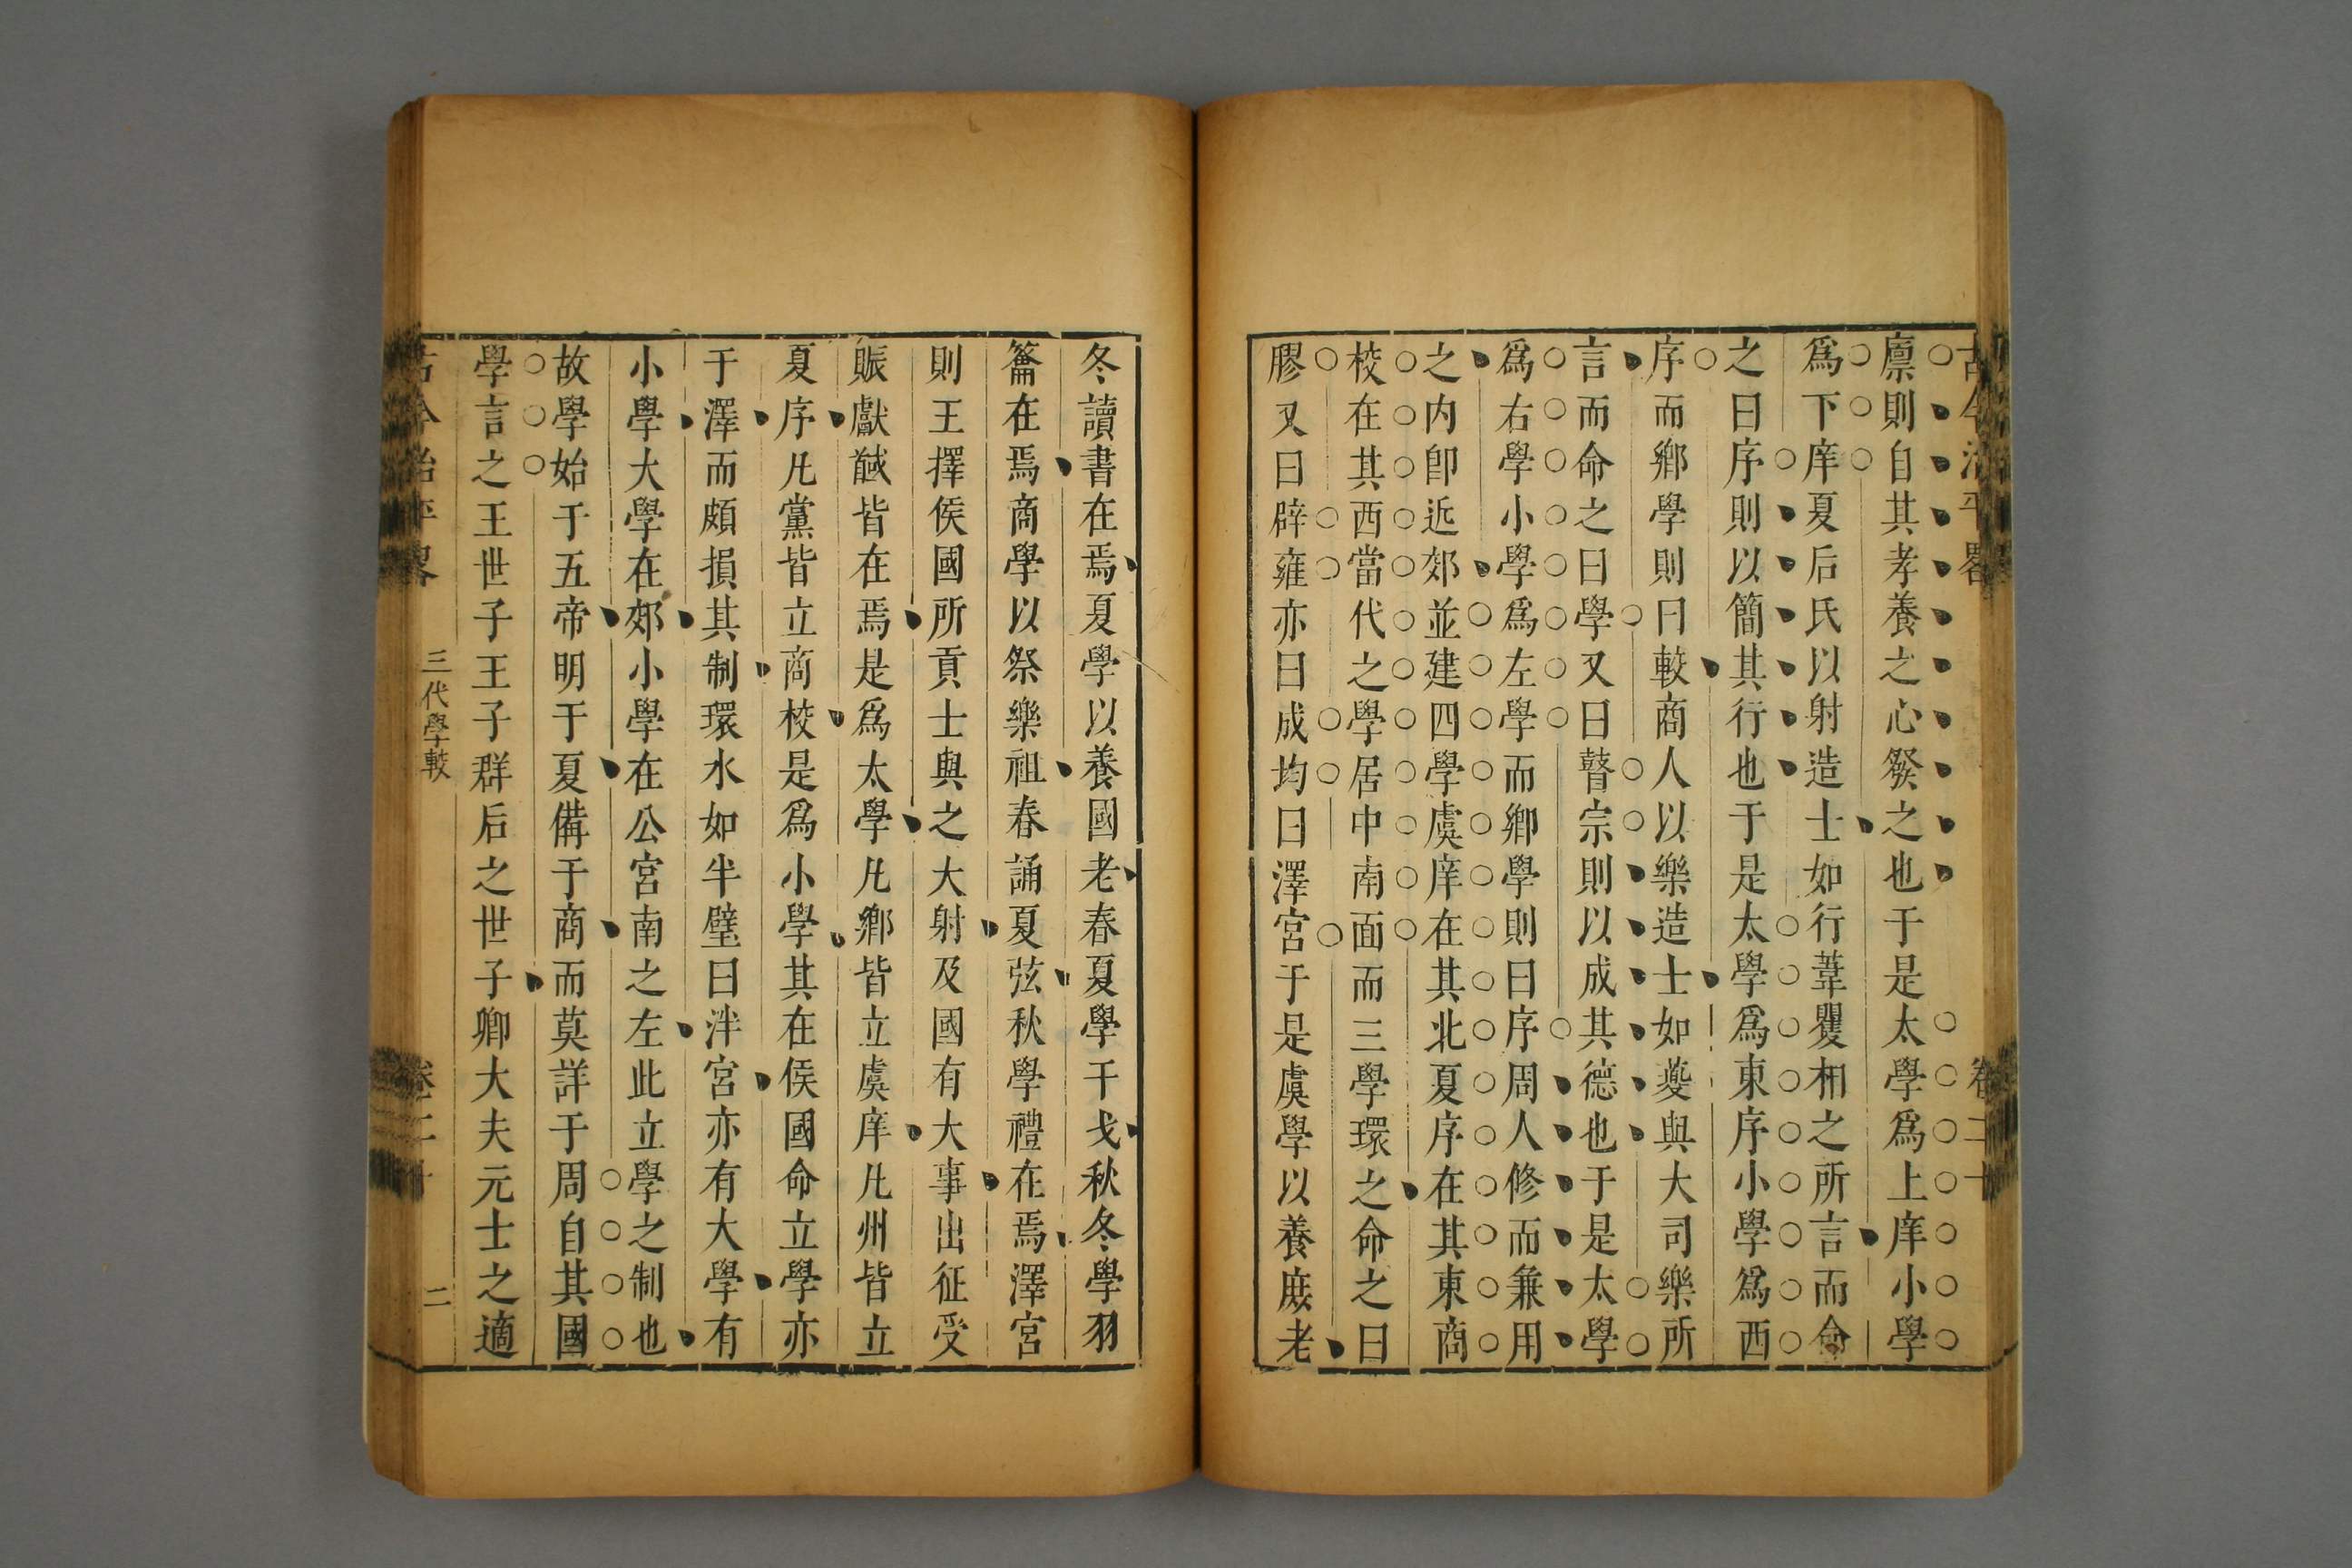 古今治平畧
卷二十
廪則自其孝養之心發之也于是太學爲上庠小學
爲下庠夏后氏以射造士如行葦矍相之所言而命
之曰序則以簡其行也于是太學爲東序小學爲西
序而鄉學則曰較商人以樂造士如夔與大司樂所
言而命之曰學又曰瞽宗則以成其德也于是太學
爲右學小學爲左學而鄉學則曰序周人修而兼用
之内卽近郊並建四學虞庠在其北夏序在其東商
校在其西當代之學居中南面而三學環之命之曰
膠又曰辟雍亦曰成均曰澤宮于是虞學以養庻老
冬讀書在焉夏學以養國老春夏學干戈秋冬學羽
籥在焉商學以祭樂祖春誦夏弦秋學禮在焉澤宮
則王擇侯國所貢士與之大射及國有大事出征受
賑獻馘皆在焉是爲太學凡鄉皆立虞庠凡州皆立
夏序凡黨皆立商校是爲小學其在侯國命立學亦
于澤而頗損其制環水如半璧曰泮宮亦有大學有
小學大學在郊小學在公宮南之左此立學之制也
故學始于五帝明于夏備于商而莫詳于周自其國
學言之王世子王子群后之世子卿大夫元士之適
古今治平畧
三代學較
卷二十
二